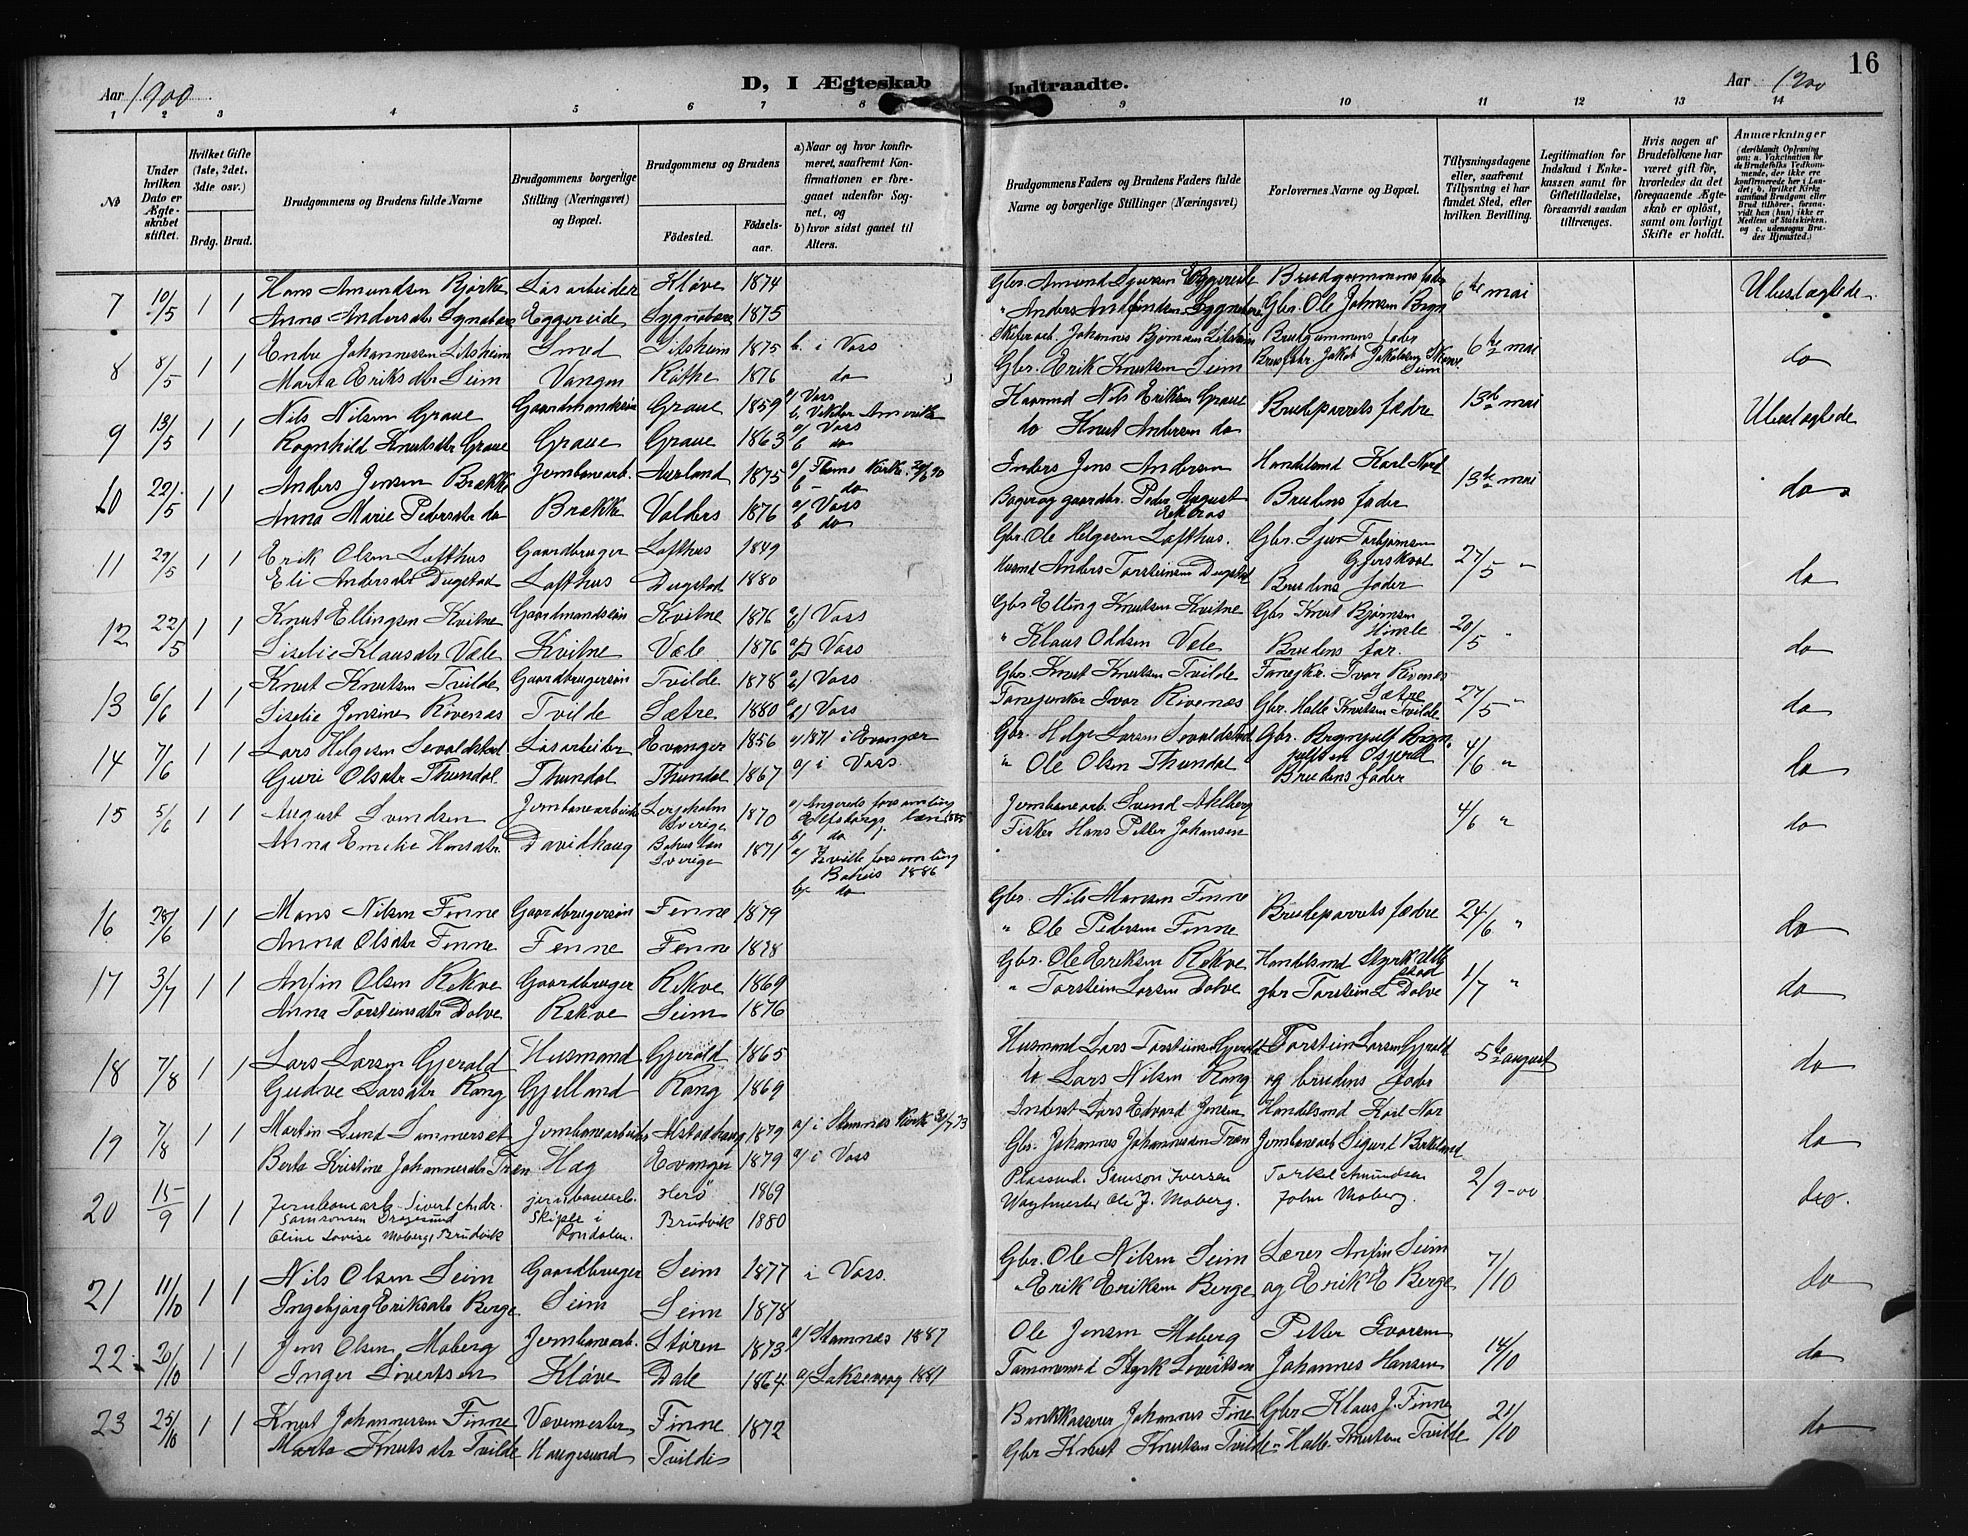 16
Aar 1900
D, I Ægteskab Indtraadte.
Aar 1900
1 2 3 4 5 6 7 8 9 10 11 12 13 14
No
Under hvilken Dato er Ægteskabet stiftet.
Hvilket Gifte (1ste, 2det, 3die osv.)
Brdg. Brud.
Brudgommens og Brudens fulde Navne
Brudgommens borgerlige Stilling (Næringsvei) og Bopæl.
Brudgommens og Brudens
Fødested.
Fødselsaar.
a) Naar og hvor konfirmeret, saafremt Konfirmationen er foregaaet udenfor Sognet, og
b) hvor sidst gaaet til Alters.
Brudgommens Faders og Brudens Faders fulde Navne og borgerlige Stillinger (Næringsvei)
Forlovernes Navne og Bopæl.
Tillysningsdagene eller, saafremt Tillysning ei har fundet Sted, efter hvilken Bevilling.
Legitimation for Indskud i Enkekassen samt for Giftetilladelse, forsaavidt saadan tiltrænges.
Hvis nogen af Brudefolkene har været gift før, hvorledes da det foregaaende Ægteskab er opløst, samt om lovligt Skifte er holdt.
Anmærkninger (deriblandt Oplysning om: a. Vakcination for de Brudefolks Vedkommende, der ikke ere konfirmerede her i Landet; b. hvilket Kirkesamfund Brudgom eller Brud tilhører, forsaavidt han (hun) ikke er Medlem af Statskirken, og c. udensogns Brudes Hjemsted.)
7 10/5 1 1 Hans Amundsen Bjørke Løsarbeider Kløve 1874 Gbr. Amund Sjursen Eggereide Brudgommens fader 6te mai Ubeslægtede.
Anna Andersdtr Lygnabære Eggereide Lygnabære 1875 " Anders Lygnabære Gbr. Ole Johnsen Bryn
8 8/5 1 1 Endre Johannessen Litsheim Smed Litsheim 1875 b. i Voss Johannes Bjørnsen Litsheim Brudgommens fader 6te mai do
Marta Eriksdtr Seim Vangen Röthe 1876 do Gbr. Erik Knutsen Seim Jakob Jakobsen Seim
9 13/5 1 1 Nils Nilsen Graue Gaardmandssøn Graue 1859 a/ Voss b. Amerika Kaarmd Nils Eriksen Graue Brudeparrets fædre 13de mai Ubeslægtede
Ragnhild Knutsdtr Graue Graue Graue 1863 a/ Voss b do do Knut Andersen do
10 22/5 1 1 Anders Jensen Brække Jernbanearb. Aurland 1875 a/ b - do Inders Jens Andersen Handelsmd Karl Nord 13de mai do
Anna Marie Pedersdtr do Brække Valders 1876 a/ Voss b do Bager og gaardbr. Peder August Brudens fader
11 29/5 1 1 Erik Olsen Lofthus Gaardbruger Lofthus 1849 Gbr. Ole Helgesen Lofthus. Gbr. Sjur Torbjørnsen Gjerskvol 27/5 " do
Eli Andersdtr Dugstad Lofthus Dugstad 1880 Husmd Anders Torsteinsen Dugstad Brudens fader
12 22/5 1 1 Knut Ellingsen Kvitne Gaardmandssøn Kvitne 1876 a/b/ Voss Gbr Elling Knutsen Kvitne Gbr Knut Bjørnsen Himle 20/5 " do
Siselie Klausdtr Væle Kvitne Væle 1876 a/b/ Voss " Klaus Oddsen Væle Brudens far.
13 6/6 1 1 Knut Knutsen Tvilde Gaardbrugersøn Tvilde 1878 a/b/ Voss. Gbr. Knut Knutsen Tvilde Ivar Rivenæs Sætre 27/5 " do
Siselie Jensine Rivenæs Tvilde Sætre 1880 a/b/ Voss Ivar Rivenæs Gbr. Halle Knutsen Tvilde
14 7/6 1 1 Lars Helgesen Sevaldstad Løsarbeider Evanger 1856 a/ 1871 i Evanger Gbr. Helge Larsen Sevaldstad Gbr. Brynjulf Brynjulfsen 4/6 " do
Guri Olsdtr Thundal Thundal Thundal 1867 a/ i Voss. " Ole Olsen Thundal Brudens fader
15 5/6 1 1 August Svendsen Jernbanearbeider Sverige 1870 a/ Angereds forsamling Elfsborgs læn 1885 b/ do Jernbanearb. Svend Akelberg 4/6 " do
Anna Emelie Hansdtr Davidhaug Bohus län Sverige 1871 a/ Kville forsamling Bahuis 1886 b/ do Fisker Hans Petter Johansen
16 28/6 1 1 Mons Nilsen Finne Gaardbrugersøn Finne 1879 Gbr. Nils Monsen Finne Brudeparrets fædre 24/6 " do
Anna Olsdtr Finne Finne Finne 1878 " Ole Pedersen Finne
17 3/7 1 1 Anfin Olsen Rekve Gaardbruger Rekve 1869 Gbr. Ole Eriksen Rekve Handelsmd Styrk Ullestad 1/7 " do
Anna Torsteinsdtr Dolve Rekve Seim 1876 " Torstein Larsen Dolve gbr Torstein L Dolve
18 7/8 1 1 Lars Larsen Gjerald Husmand Gjerald 1865 Husmand Lars Torsteinsen Gjerald Torstein Larsen Gjerald 5te august do
Gudve Larsdtr Rong Gjelland Rong 1869 do Lars Nilsen Rong og brudens fader
19 7/8 1 1 Martin Lund Sommerset Jernbanearbeider Alstadhaug 1879 a/ i Stamnes Kirke Inderst Lars Edvard Jensen Handelsmd Karl Nor do
Berta Kristine Johannesdtr Træn Hæg Evanger 1879 a/ i Voss Gbr. Johannes Johannesen Træn Jernbanearb Sigurt Birkeland
20 15/9 1 1 Jernbanearb. Sivert Andr. Samsonsen Dragesund jernbanearb. Herö 1869 Plassmd. Samson Iversen Torkel Amundsen 2/9-00 do.
Oline Lovise Moberg, Brudvik Skiple i Rondalen. Brudvik 1880 Vagtmester Ole J. Moberg. John Moberg.
21 11/10 1 1 Nils Olsen Seim Gaardbruger Seim 1877 i Voss. Gbr. Ole Nilsen Seim Lærer Anfin Seim 7/10 do
Ingebjørg Eriksdtr Berge Seim Seim 1878 " Erik Eriksen Berge og Erik E Berge
22 20/10 1 1 Jens Olsen Moberg Jernbanearb. Støren 1873 a/ Stamnæs 1887 Ole Jensen Moberg Petter Ivarsen 14/10 do
Inger Sivertsen Kløve Dale 1864 a/ Laksevaag 1881 Tømmermd Styrk Sivertsen Johannes Hansen
23 25/10 1 1 Knut Johannessen Finne Vævemester Finne 1872 Bankkasserer Johannes Fine Gbr Klaus J. Finne 21/10 do
Marta Knutsdtr Tvilde Haugesund Tvilde Gbr Knut Knutsen Tvilde " Halle Knutsen Tvilde